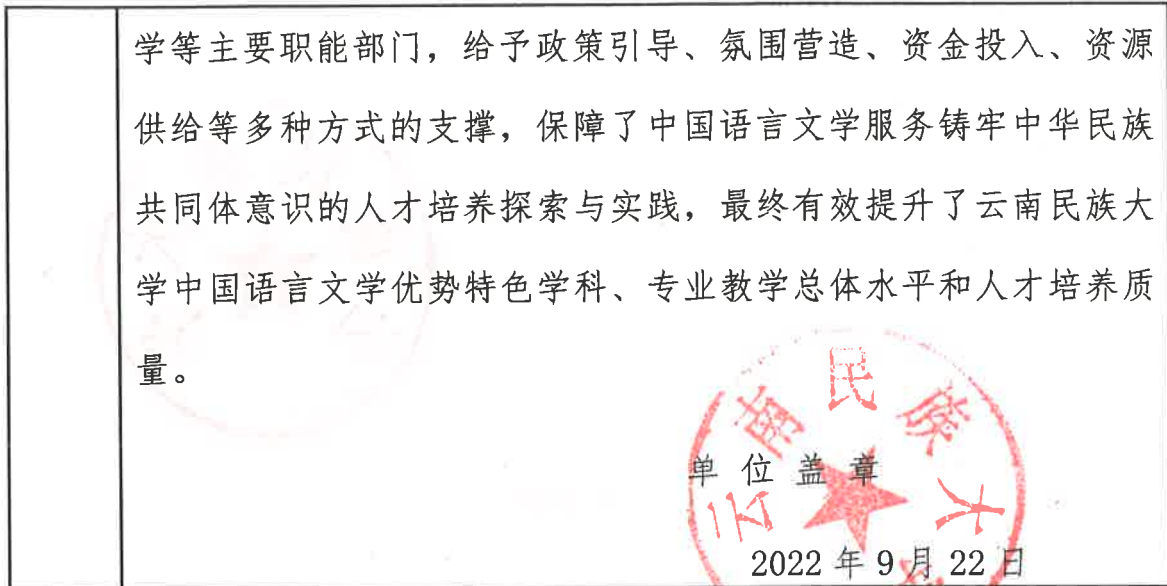 学等主要职能部门，给予政策引导、氛围营造、资金投入、资源
供给等多种方式的支撑，保障了中国语言文学服务铸牢中华民族
共同体意识的人才培养探索与实践，最终有效提升了云南民族大
学中国语言文学优势特色学科、专业教学总体水平和人才培养质
量。
云南民族大
单位盖章
2022年9月22日